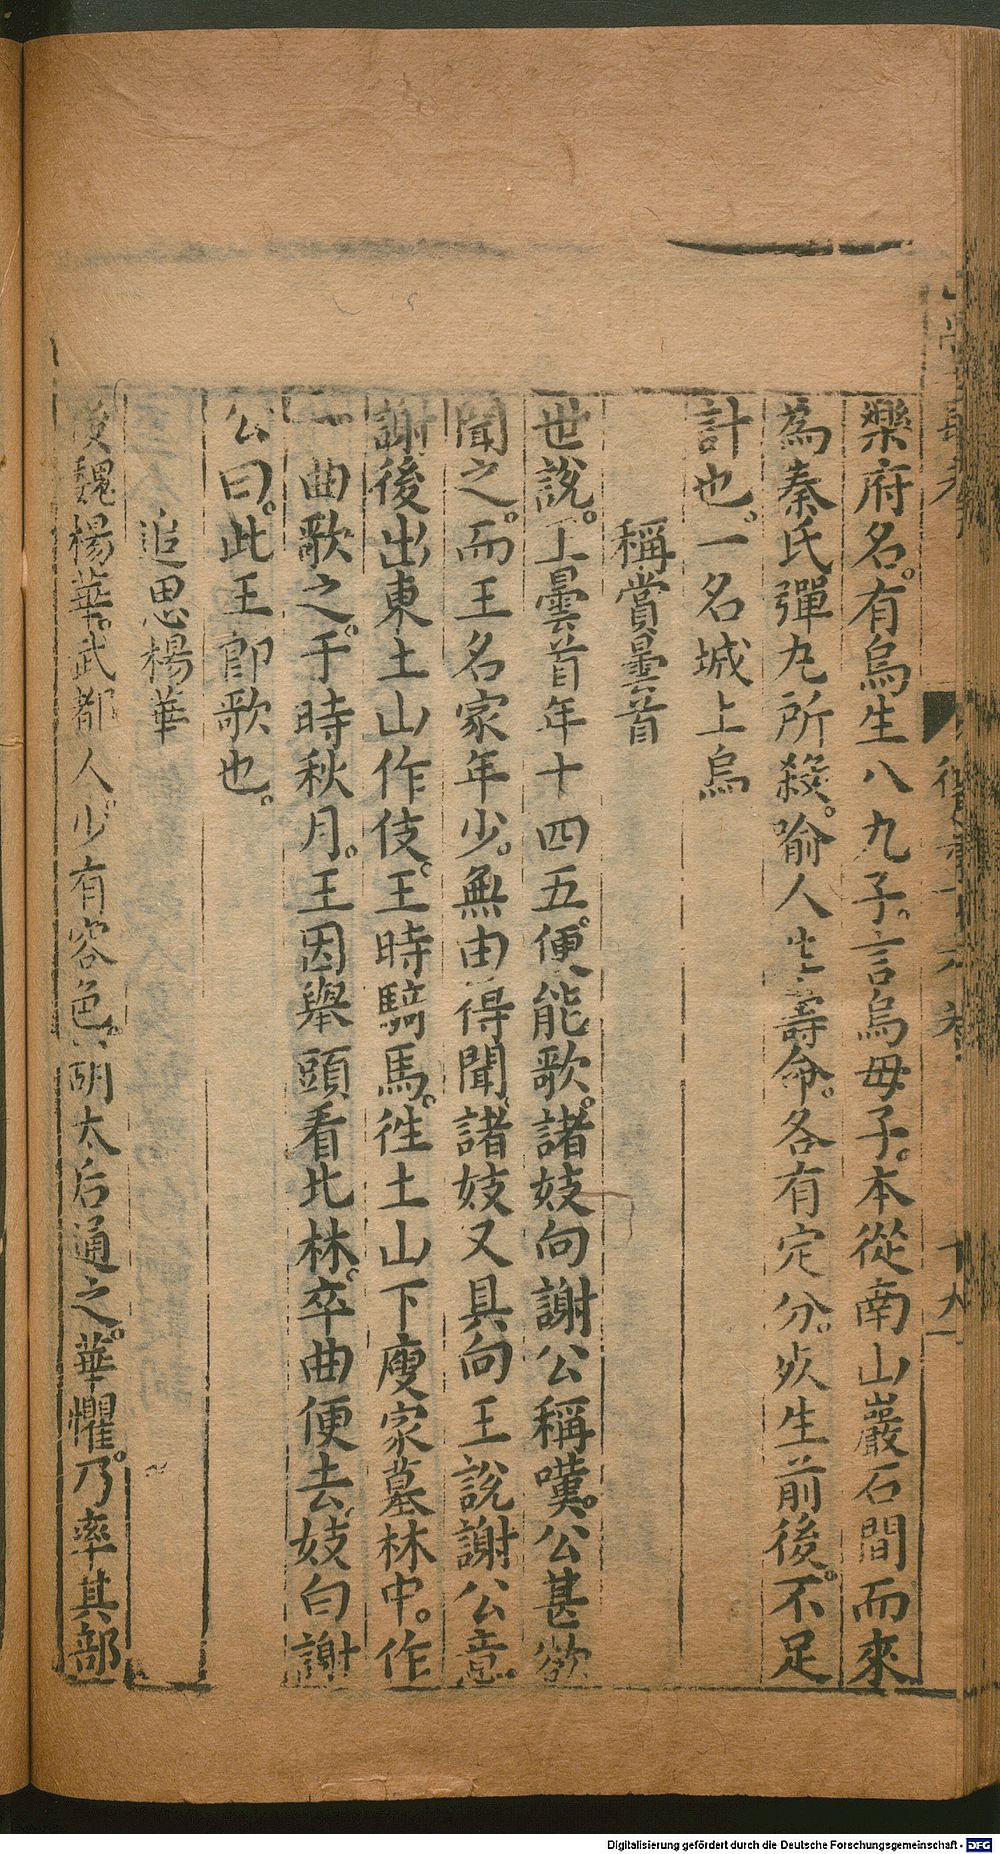 樂府名。有烏生八九子。言烏母子。本從南山巖石間而來
為秦氏彈丸所殺。喻人生壽命。各有定分。死生前後。不足
計也。一名城上烏
稱賞曇首
世說。王曇首年十四五。便能歌。諸妓向謝公稱嘆。公甚欲
聞之。而王名家年少。無由得聞。諸妓又具向王說謝公意。
謝後出東土山作伎。王時騎馬。徃土山下廋家墓林中。作
一曲歌之。于時秋月。王因舉頭看北林。卒曲便去。妓白謝
公曰。此王郎歌也。
追思楊華
後魏楊華。武都人。少有容色。胡太后通之。華懼。乃率其部
Digitalisierung gefördert durch die Deutsche Forschungsgemeinschaft - DFG